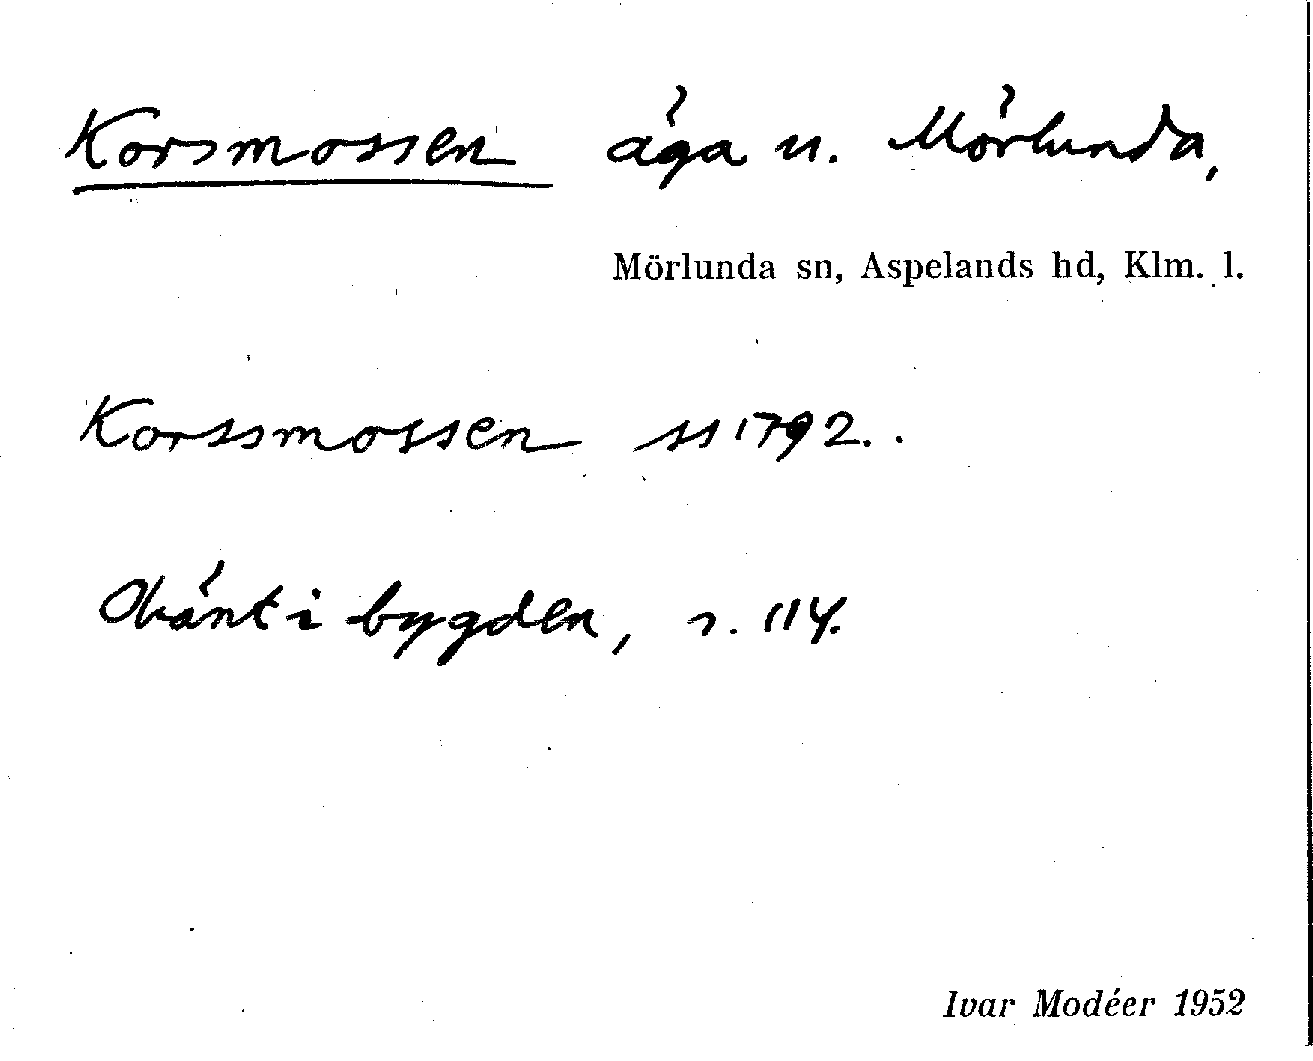 Korsmossen äga u. Mörlunda,
Mörlunda sn, Aspelands hd, Klm. l.
Korssmossen ss 1792.
Okänt i bygden, s. 114.
Ivar Modéer 1952